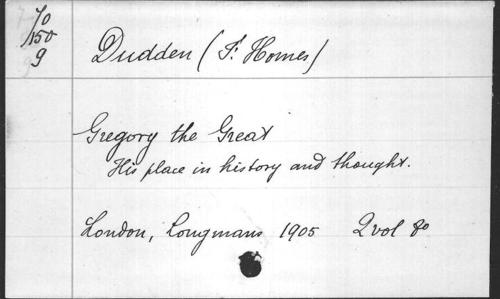 70
/150
9
Dudden (F. Homes)
Gregory the Great
His place in history and thought.
London, Longmans 1905 2 vol 8o